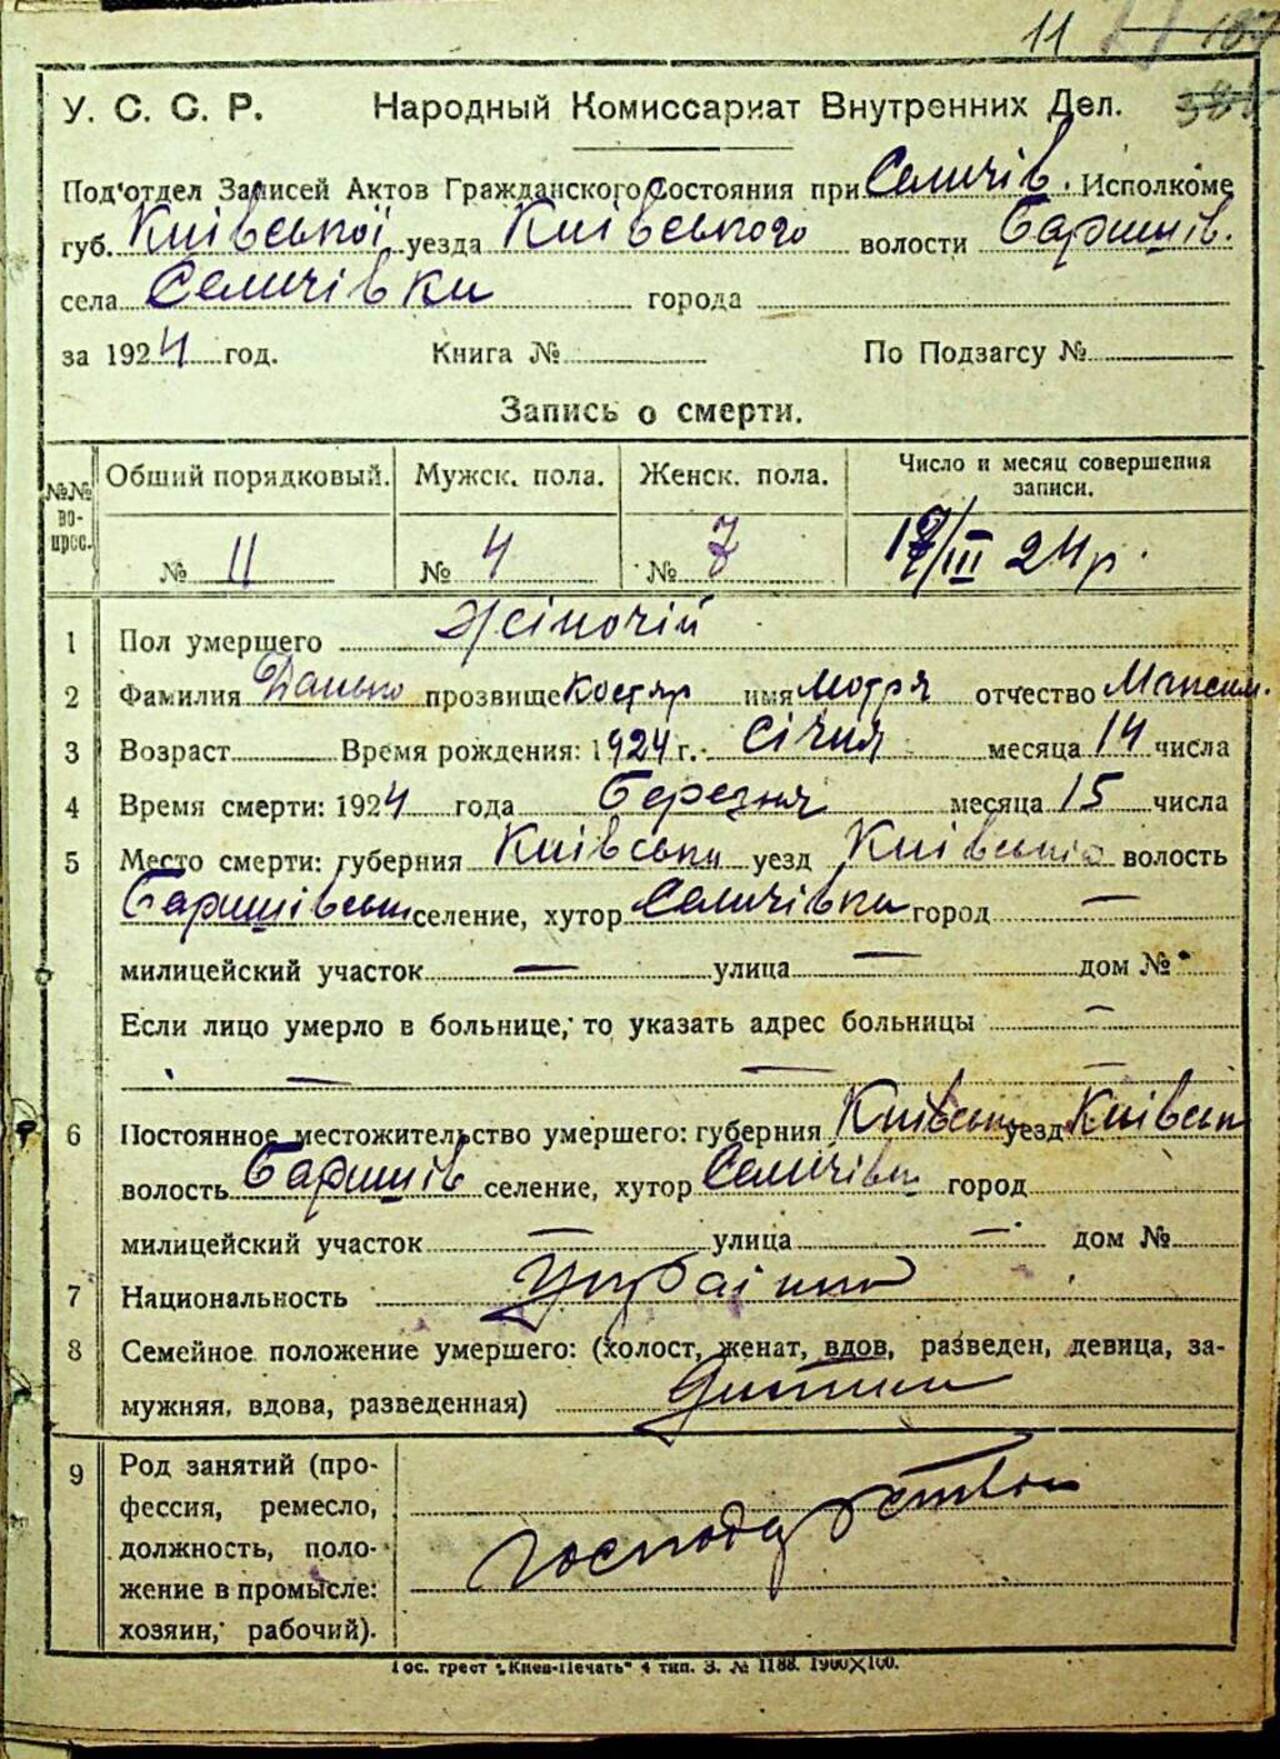 11
У. С. С. Р. Народный Комиссариат Внутренних Дел.
Под'отдел Записей Актов Гражданского Состояния при Селичів. Исполкоме
губ. Київської уезда Київського волости Баришів.
села Селичівки города
за 1924 год. Книга № По Подзагсу №
Запись о смерти.
№№ вопрос. Общий порядковый. Мужск. пола. Женск. пола. Число и месяц совершения записи.
№ 11 № 4 № 7 17/III 24 р.
1 Пол умершего Жіночій
2 Фамилия Данько прозвище Костяр имя Мотря отчество Максим.
3 Возраст Время рождения: 1924 г. Січня месяца 14 числа
4 Время смерти: 1924 года Березня месяца 15 числа
5 Место смерти: губерния Київська уезд Київський волость
Баришівськ селение, хутор Селичівка город —
милицейский участок — улица — дом №
Если лицо умерло в больнице, то указать адрес больницы —
— — —
6 Постоянное местожительство умершего: губерния Київськ уезд Київськ
волость Баришів селение, хутор Селичівк город
милицейский участок — улица — дом №
7 Национальность Україинка
8 Семейное положение умершего: (холост, женат, вдов, разведен, девица, за-
мужняя, вдова, разведенная) Дитина
9 Род занятий (про-
фессия, ремесло,
должность, поло-
жение в промысле:
хозяин, рабочий).
господарство
Гос. трест „Киев-Печать" 4 тип. З. № 1188. 1900×100.